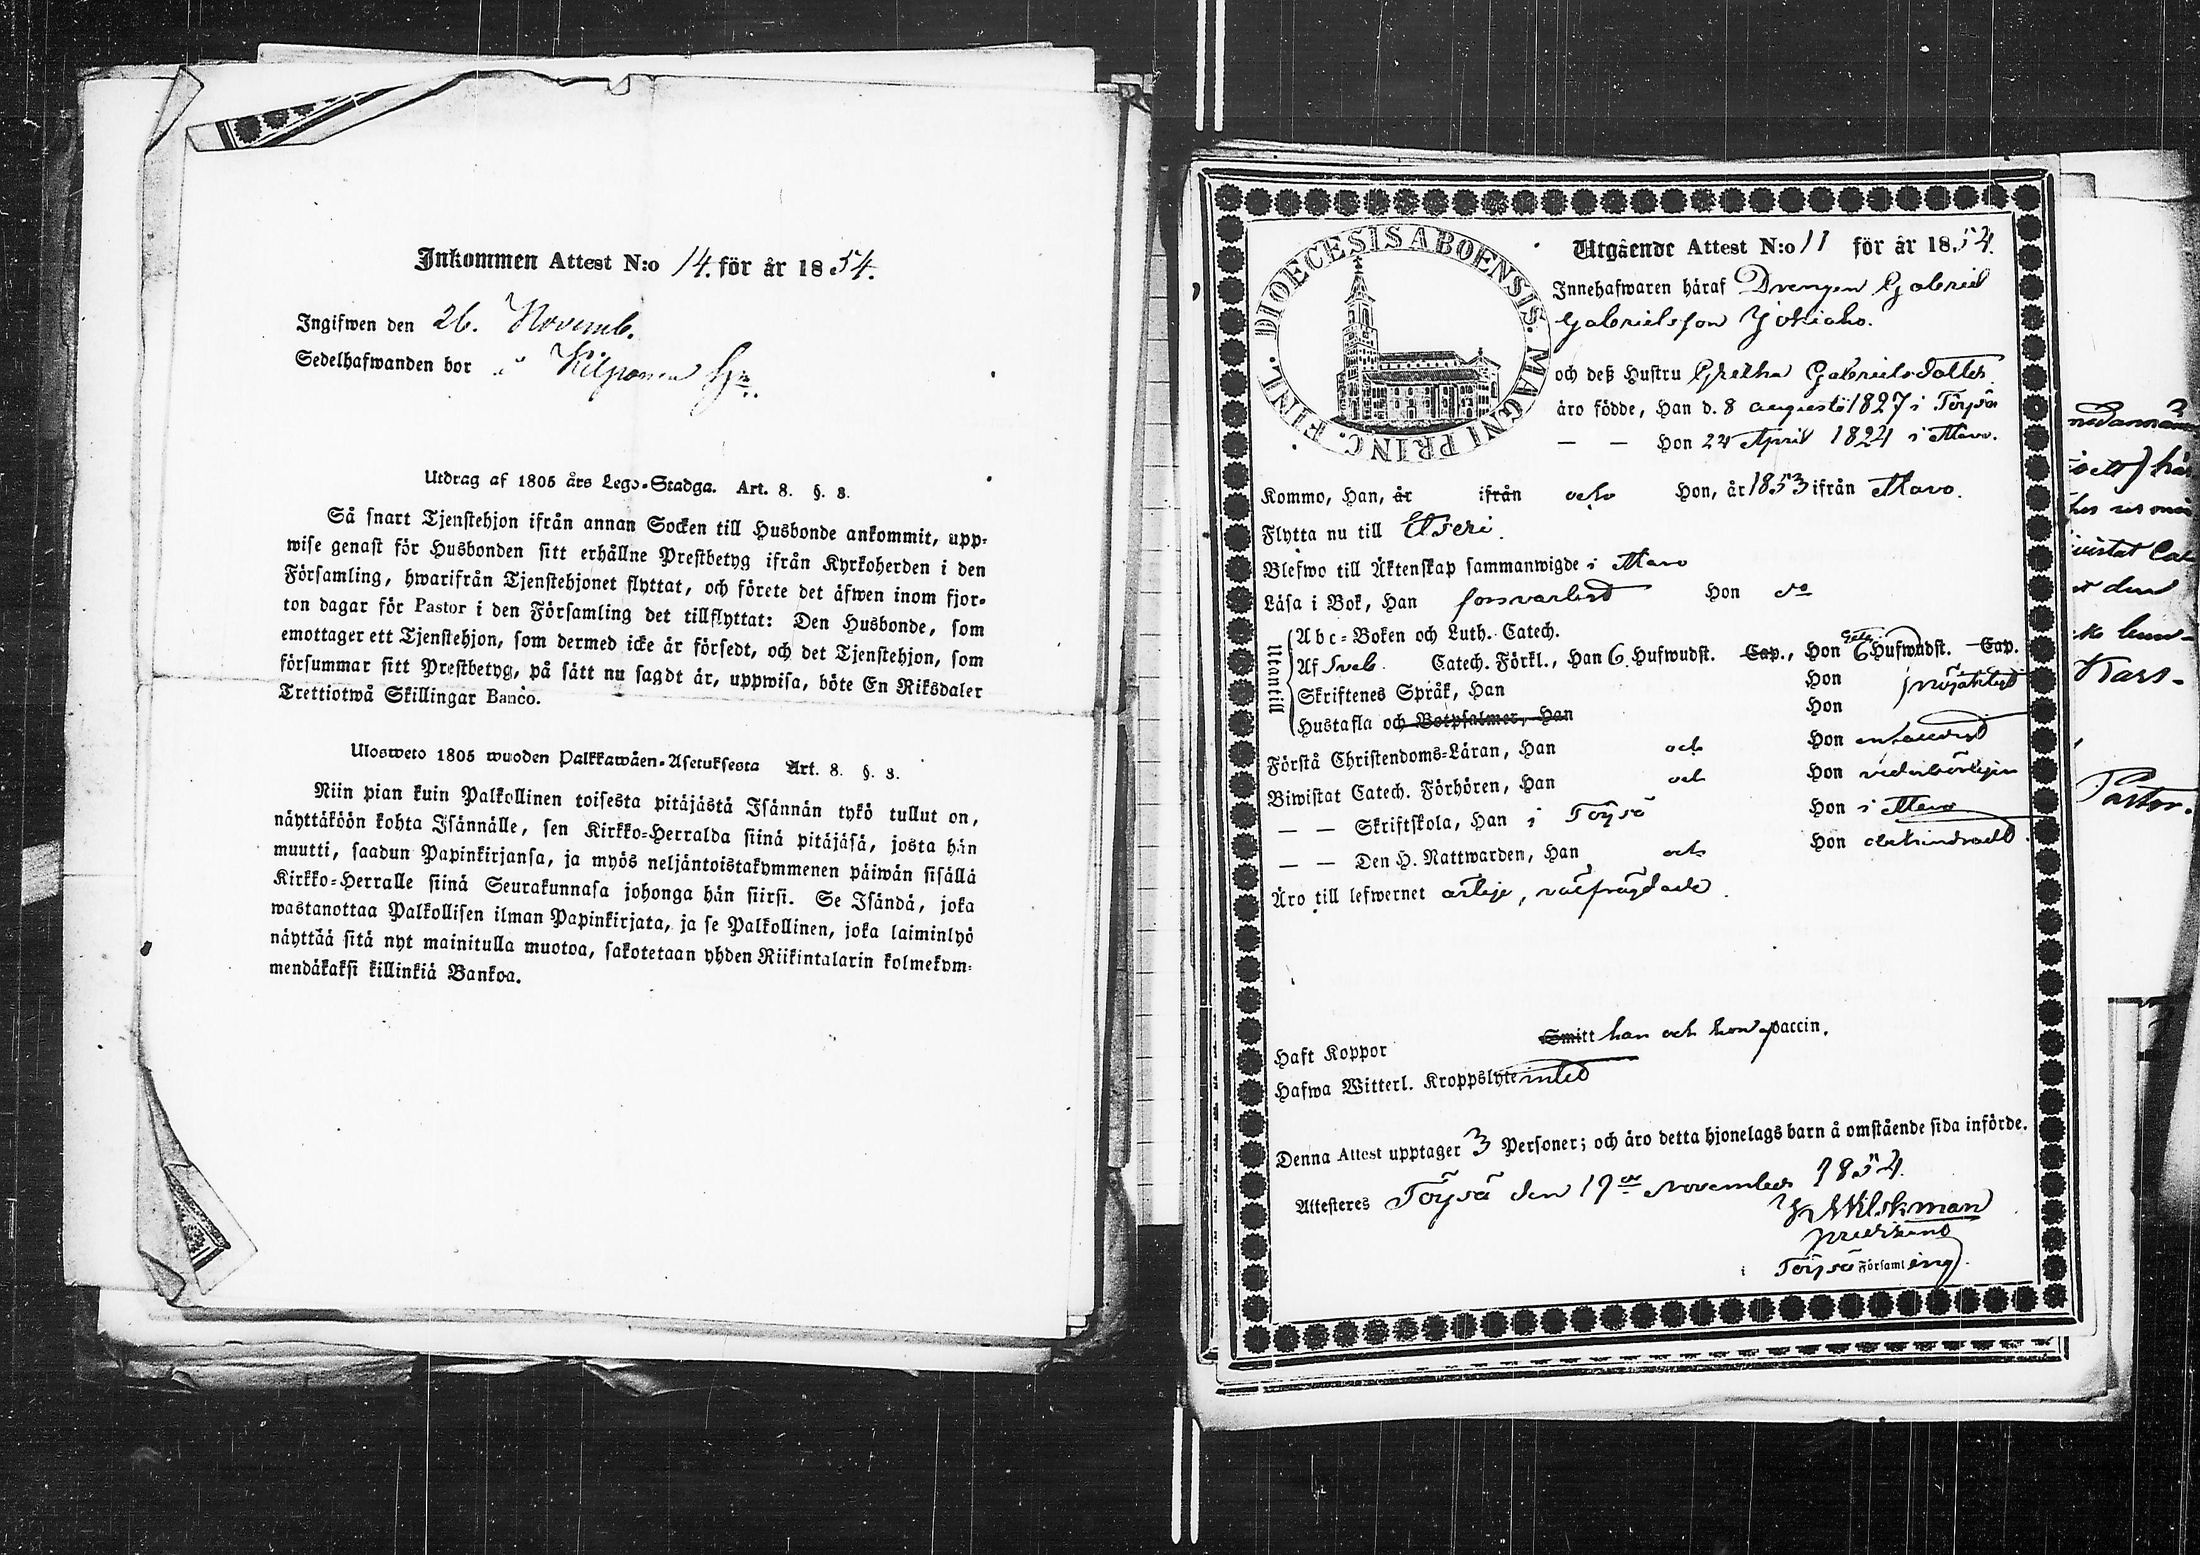 Inkommen Attest N:o 14. för år 1854.
Ingifwen den 26. Novemb.
Sedelhafwanden bor å Kilponen Hn.
Utdrag af 1805 års Lego-Stadga. Art. 8. §. 8.
Så snart Tjenstehjon ifrån annan Socken till Husbonde ankommit, upp-
wise genast för Husbonden sitt erhållne Prestbetyg ifrån Kyrkoherden i den
Församling, hwarifrån Tjenstehjonet flyttat, och förete det äfwen inom fjor-
ton dagar för Pastor i den Församling det tillflyttat: Den Husbonde, som
emottager ett Tjenstehjon, som dermed icke är försedt, och det Tjenstehjon, som
försummar sitt Prestbetyg, på sätt nu sagdt är, uppwisa, böte En Riksdaler
Trettiotwå Skillingar Banco.
Ulosweto 1805 wuoden Palkkawäen-Asetuksesta Art. 8. §. 8.
Niin pian kuin Palkollinen toisesta pitäjästä Isännän tykö tullut on,
näyttäköön kohta Isännälle, sen Kirkko-Herralda siinä pitäjäsä, josta hän
muutti, saadun Papinkirjansa, ja myös neljäntoistakymmenen päiwän sisällä
Kirkko-Herralle siinä Seurakunnasa johonga hän siirsi. Se Isändä, joka
wastanottaa Palkollisen ilman Papinkirjata, ja se Palkollinen, joka laiminlyö
näyttää sitä nyt mainitulla muotoa, sakotetaan yhden Riikintalarin kolmekym-
mendäkaksi killinkiä Bankoa.
FINL. DIOECESIS ABOENSIS. MAGNI PRINC.
Utgående Attest N:o 11 för år 1854.
Innehafwaren häraf Drengen Gabriel
Gabrielsson Jokiaho.
och deß Hustru Gretha Gabrielsdotter
äro födde, Han d. 8 augusti 1827 i Töysä
— — Hon 24 April 1824 i Alavo.
Kommo, Han, år ifrån och Hon, år 1853 ifrån Alavo.
Flytta nu till Etseri.
Blefwo till Äktenskap sammanwigde i Alavo
Läsa i Bok, Han försvarligt Hon do
Utantill
Abc-Boken och Luth. Catech.
Af Sveb. Catech. Förkl., Han 6 Hufwudst. Cap., Hon 6 Hufwudst. Cap.
Skriftenes Språk, Han Hon
Hustafla och Botpsalmer, Han Hon
Förstå Christendoms-Läran, Han och Hon enfaldigt
Biwistat Catech. Förhören, Han och Hon vederbörligen
— — Skriftskola, Han i Töysä Hon i Alavo
— — Den H. Nattwarden, Han och Hon obehindradt.
Äro till lefwernet ärlige, välfrägdade.
Haft Koppor Smitt han och hon vaccin.
Hafwa Witterl. Kroppslyte intet
Denna Attest upptager 3 Personer; och äro detta hjonelags barn å omstående sida införde.
Attesteres Töysä den 19de November 1854.
Wilskman
predikant
i Töysä Församling.
Pastor.